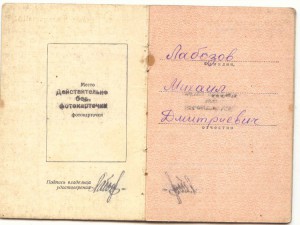 Место
Действительно
без
фотокарточки
фотокарточки
Подпись владельца
удостоверения
Лабозов
фамилия
имя
Дмитриевич
отчество